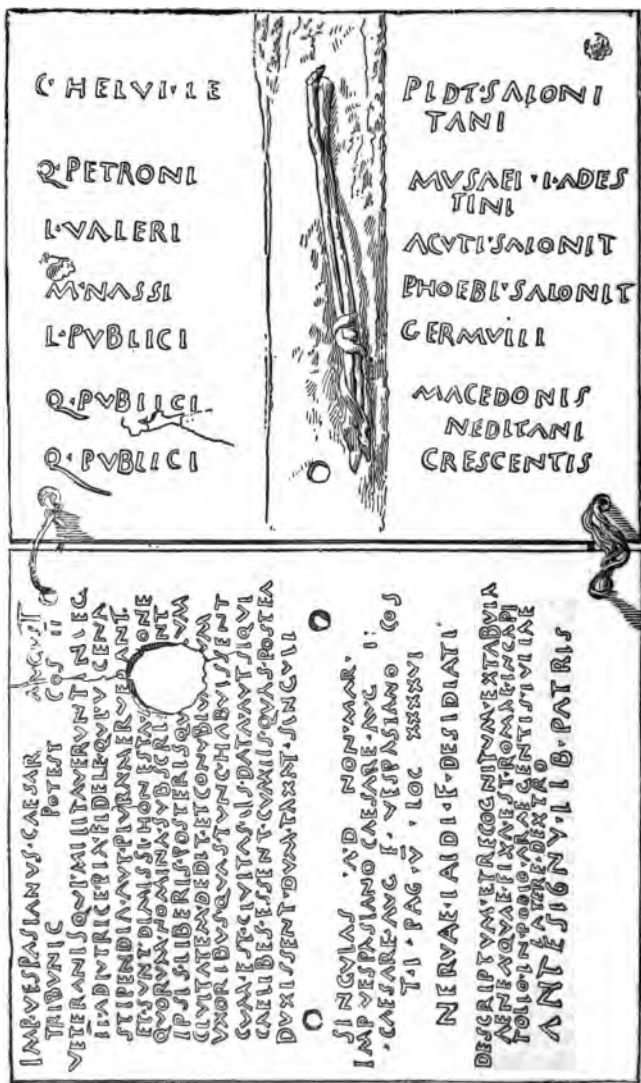 C·HELVI·LE
PIDT·SALONI
TANI
Q·PETRONI
MVSAEI·IADES
TINI
L·VALERI
ACVTI·SALONIT
M·NASSI
PHOEBI·SALONIT
L·PVBLICI
GERMVLLI
Q·PVBLICI
MACEDONIS
NEDITANI
Q·PVBLICI
CRESCENTIS
IMP·VESPASIANVS·CAESAR AVGVST
TRIBVNIC POTEST COS II
VETERANIS QVI·MILITAVERVNT N·LEG
II·ADVTRICE·PIA·FIDELE·QVI·V·CENA
STIPENDIA·AVT·PLVRA·MERVERANT
ET·SVNT·DIMISSI·HONESTA ONE
QVORVM·NOMINA·SVBSCRI NT
IPSIS·LIBERIS·POSTERISQV VM
CIVITATEM·DEDIT·ET·CONVBIVM VM
VXORIBVS·QVAS·TVNC·HABVISSENT
CVM·EST·CIVITAS·IIS·DATA·AVT·SIQVI
CAELIBES·ESSENT·CVM·IIS·QVAS·POSTEA
DVXISSENT·DVM·TAXAT·SINGVLI
SINGVLAS A·D NON·MAR·
IMP·VESPASIANO CAESARE·AVG II
CAESARE·AVG F·VESPASIANO COS
T·I·PAG·V·LOC XXXXVI
NERVAE·LAIDI·F·DESIDIATI
DESCRIPTVM·ET·RECOGNITVM·EX·TABVLA
AENEA·QVAE·FIXA·EST·ROMAE·IN·CAPI
TOLIO·IN·PODIO·ARAE·GENTIS·IVLIAE
LATERE·DEXTRO
ANTE·SIGNV·LIB·PATRIS